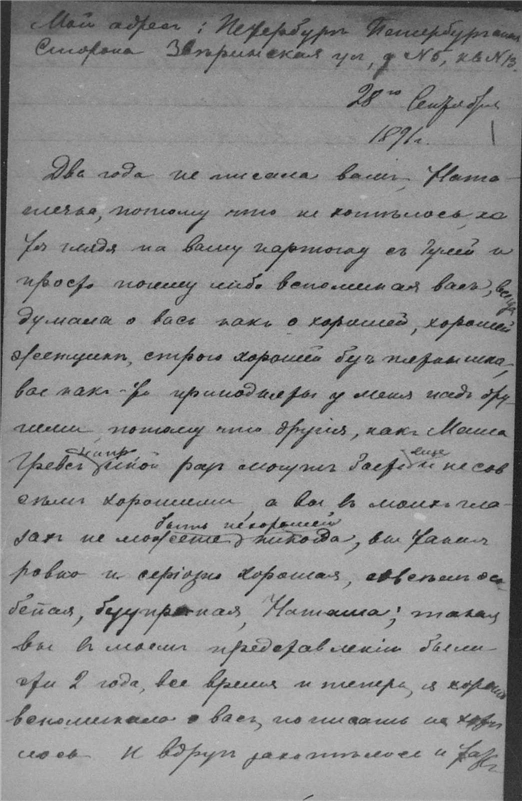 Мой адресъ: Петербургъ Петербургская
Сторона Звѣринская ул, д №6, кв №13.
28го Сентября
1891г.
Два года не писала вамъ, Ната-
шечка, потому что не хотѣлось, хо
тя глядя на вашу карточку съ Гулей и
просто почему либо вспоминая васъ, всегда
думала о васъ какъ о хорошей, хорошей
женщинѣ, строго хорошей безъ пятнышка
вы какъ-то приподняты у меня надъ дру-
гими потому что другія, какъ Маша
Гревсъ напр иной разъ могутъ быть еще и не сов
сѣмъ хорошими, а вы въ моихъ гла-
захъ не можете быть нехорошей никогда, вы такая
ровно и серіозно хорошая, совсѣмъ осо
бенная, безупречная, Наташа; такая
вы въ моемъ представленіи были
эти 2 года, все время и теперь, я хорошо
вспоминала о васъ, но писать не хотѣ
лось и вдругъ захотѣлось и